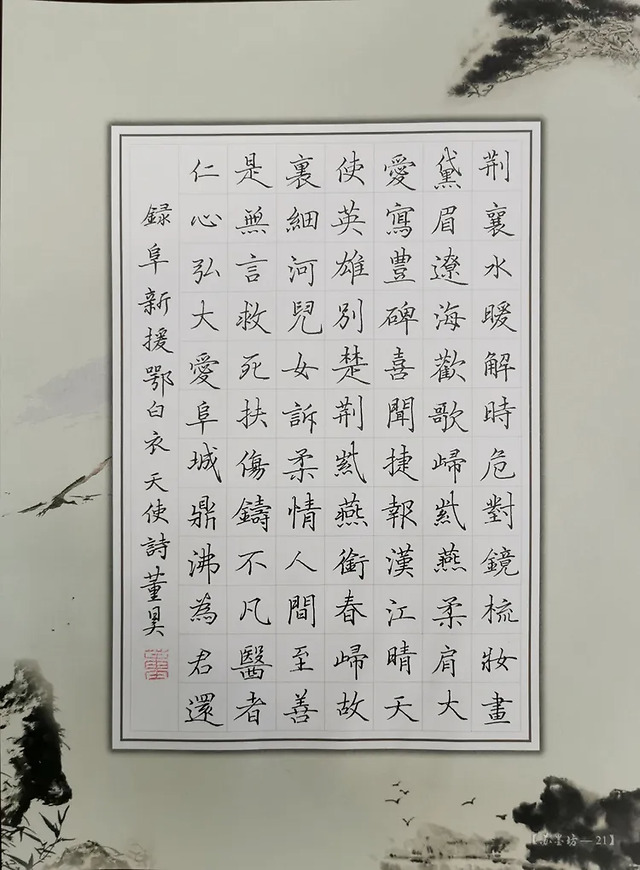 荆襄水暖解時危對鏡梳妝畫
黛眉遼海歡歌歸紫燕柔肩大
愛寫豐碑喜聞捷報漢江晴天
使英雄別楚荆紫燕銜春歸故
裏細河兒女訴柔情人間至善
是無言救死扶傷鑄不凡醫者
仁心弘大愛阜城鼎沸為君還
録阜新援鄂白衣天使詩董昊
【水墨坊—21】